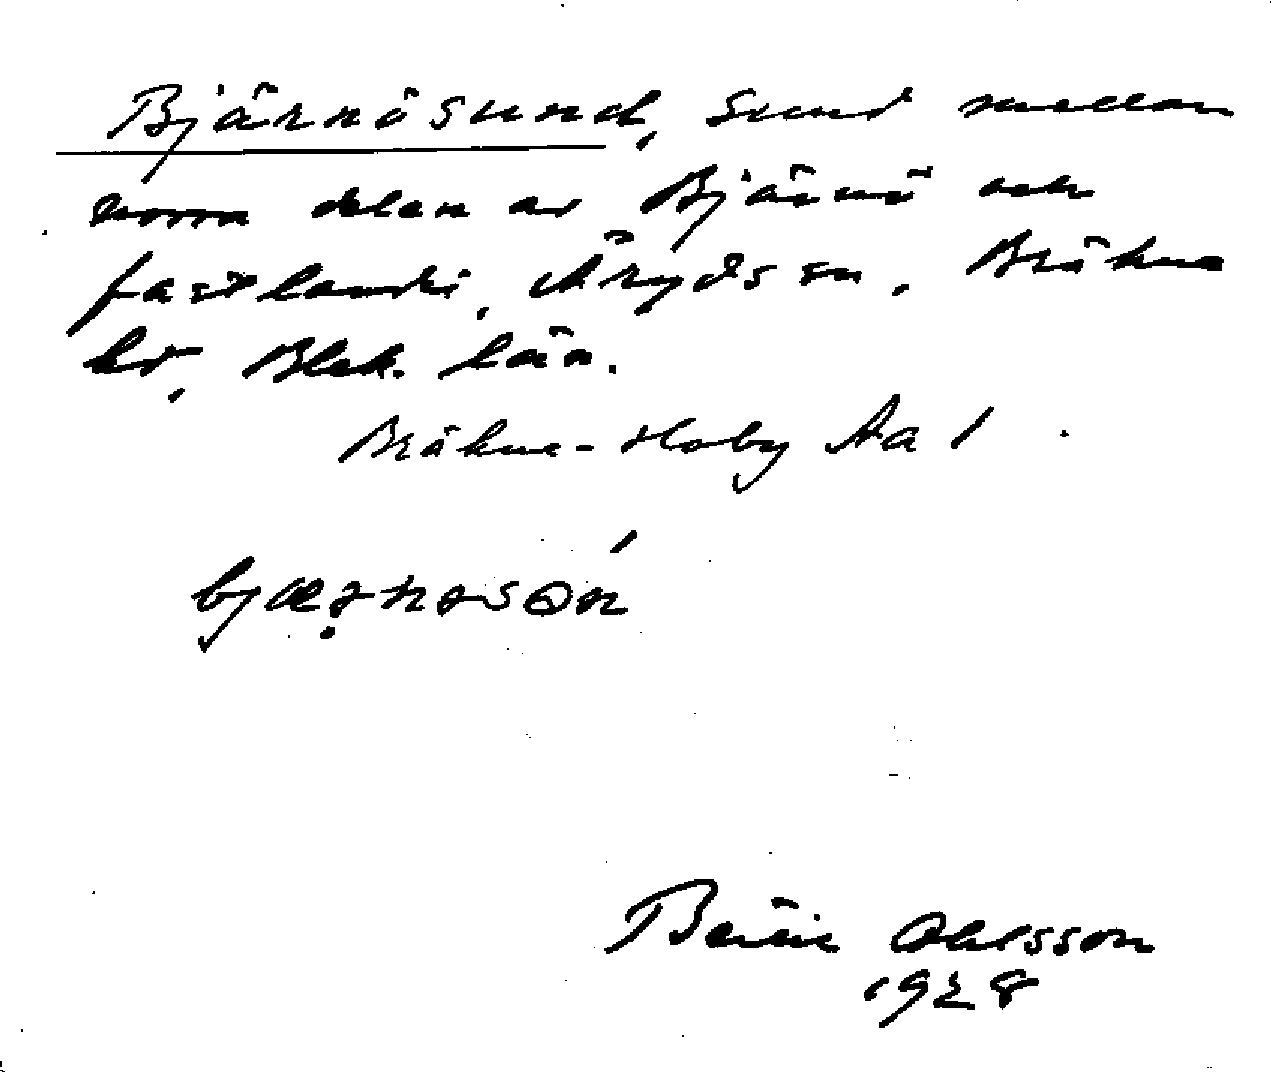 Bjärnösund, sund mellan
norra delen av Bjärnö och
fastlandet, Åryds sn, Bräkne
hd, Blek. län.
Bräkne-Hoby Aa 1
Bertil Ohlsson
1928